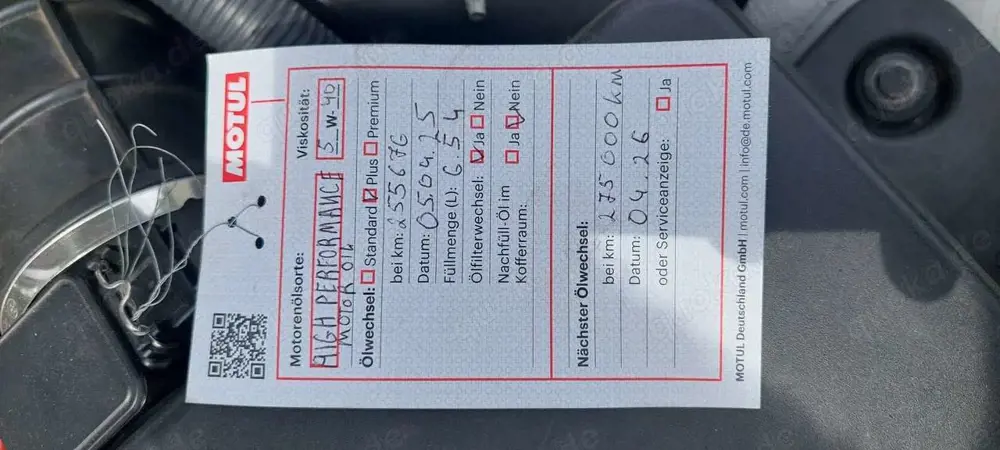 MOTUL
Motorenölsorte:
Viskosität:
HIGH PERFORMANCE
MOTOR OIL
5 W- 40
Ölwechsel: Standard Plus Premium
bei km: 255676
Datum: 05.04.25
Füllmenge (L): 6.54
Ölfilterwechsel: Ja Nein
Nachfüll-Öl im
Kofferraum: Ja Nein
Nächster Ölwechsel:
bei km: 275000 KM
Datum: 04.26
oder Serviceanzeige: Ja
MOTUL Deutschland GmbH | motul.com | info@de.motul.com